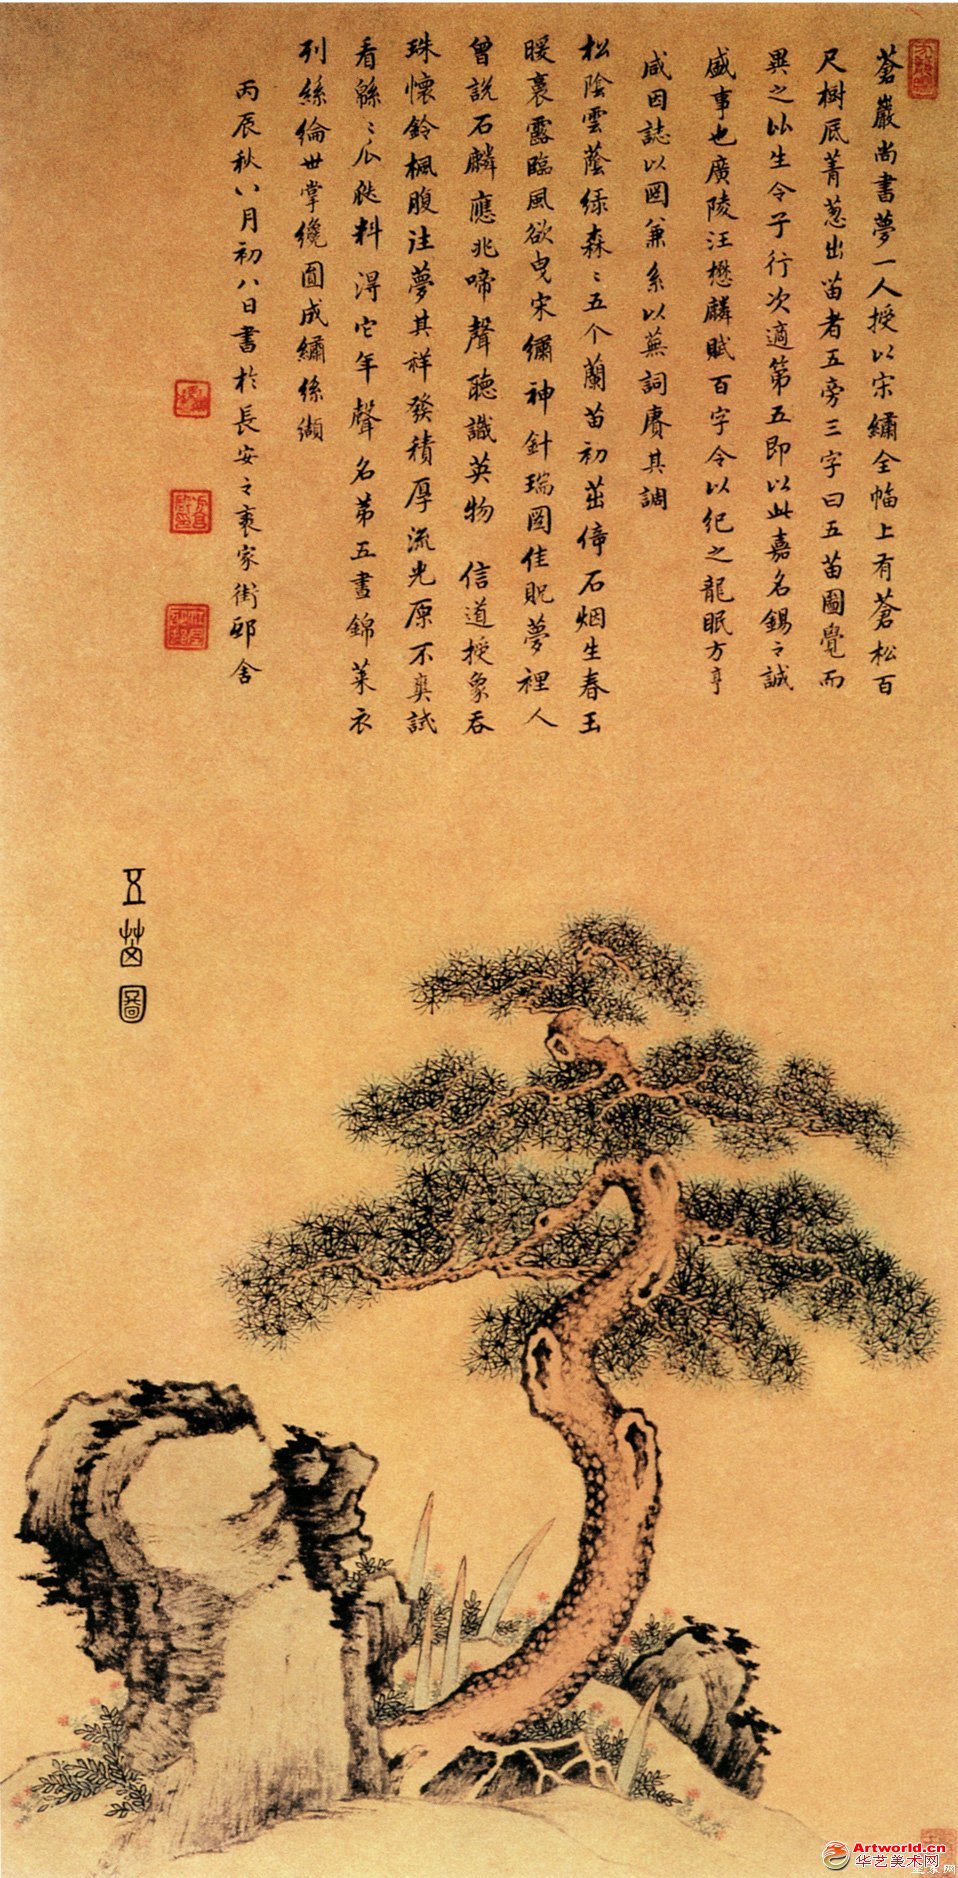 蒼巖尚書夢一人授以宋繡全幅上有蒼松百
尺樹底菁蔥出苗者五旁三字曰五苗圖覺而
異之比生令子行次適第五即以此嘉名錫之誠
盛事也廣陵汪懋麟賦百字令以紀之龍眠方亨
咸因誌以圖兼系以蕪詞賡其調
松陰雲蔭綠森〻五个蘭苗初茁倚石烟生春玉
暖裛露臨風欲曳宋繡神針瑞圖佳貺夢裡人
曾說石麟應兆啼聲聽識英物 信道授象吞
珠懷鈴楓腹註夢其祥發積厚流光原不爽試
看緜〻瓜瓞料得它年聲名第五晝錦萊衣
列絲綸世掌纔圓成繡絲纈
丙辰秋八月初八日書於長安之裏家街邸舍
五苗圖
Artworld.cn
华艺美术网